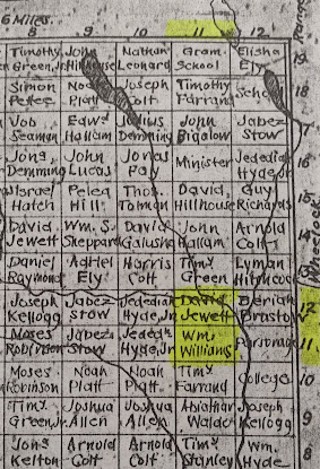 6 Miles.
8 9 10 11 12
Timothy Green, Jr. John Hillhouse Nathan Leonard Gram. School Elisha Ely 19
Simon Noah Platt Joseph Colt Timothy Farrand 18
Job Seaman Edwd Hallam Julius Demming John Bigalow Jabez Stow 17
Jona. Demming John Lucas Jonas Minister Jedediah Hyde, Jr 16
Israel Hatch Peleg Hill Thos. Tolman David Hillhouse Guy Richards 15
David Jewett Wm. S. Sheppard David Galusha John Hallam Arnold Colt 14
Daniel Raymond Adriel Ely Harris Colt Timy Green Lyman Hitchcock 13
Joseph Kellogg Jabez Stow Jedediah Hyde, Jr David Jewett Beriah 12
Moses Robinson Jabez Stow Jededh Hyde, Jr Wm. Williams Parsonage 11
Moses Robinson Noah Platt Noah Platt. Timy Farrand College 10
Timy. Green, Jr. Joshua Allen Joshua Allen Abiathar Waldo Joseph Kellogg 9
Jona Kelton Arnold Colt Arnold Colt Timy Stanley Wm. Hyde 8
Wheelock